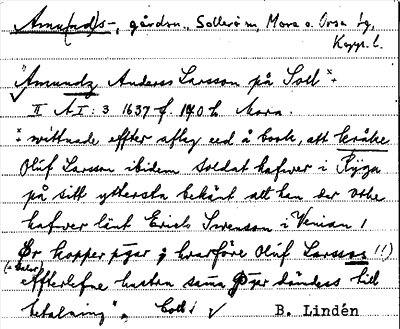 Amund(s)-, gårdsn., Sollerön, Mora o. Orsa tg,
Kopp. l.
"Amundz Anders Larsson på Soll"
II AI: 3 1637 f 190 b Mora.
wittnade effter aflag eed å book, att kråke
Oluf Larsson ibidem soldat hafwer i Ryga
på sitt yttersta bekänt att han der vthe
hafwer länt Erich Swenson i Venian 1
Ör kopper hwarföre Oluf Larsons (!)
(=daler)
Efterlefne hustru dömdes till
betalning".
B. Lindén